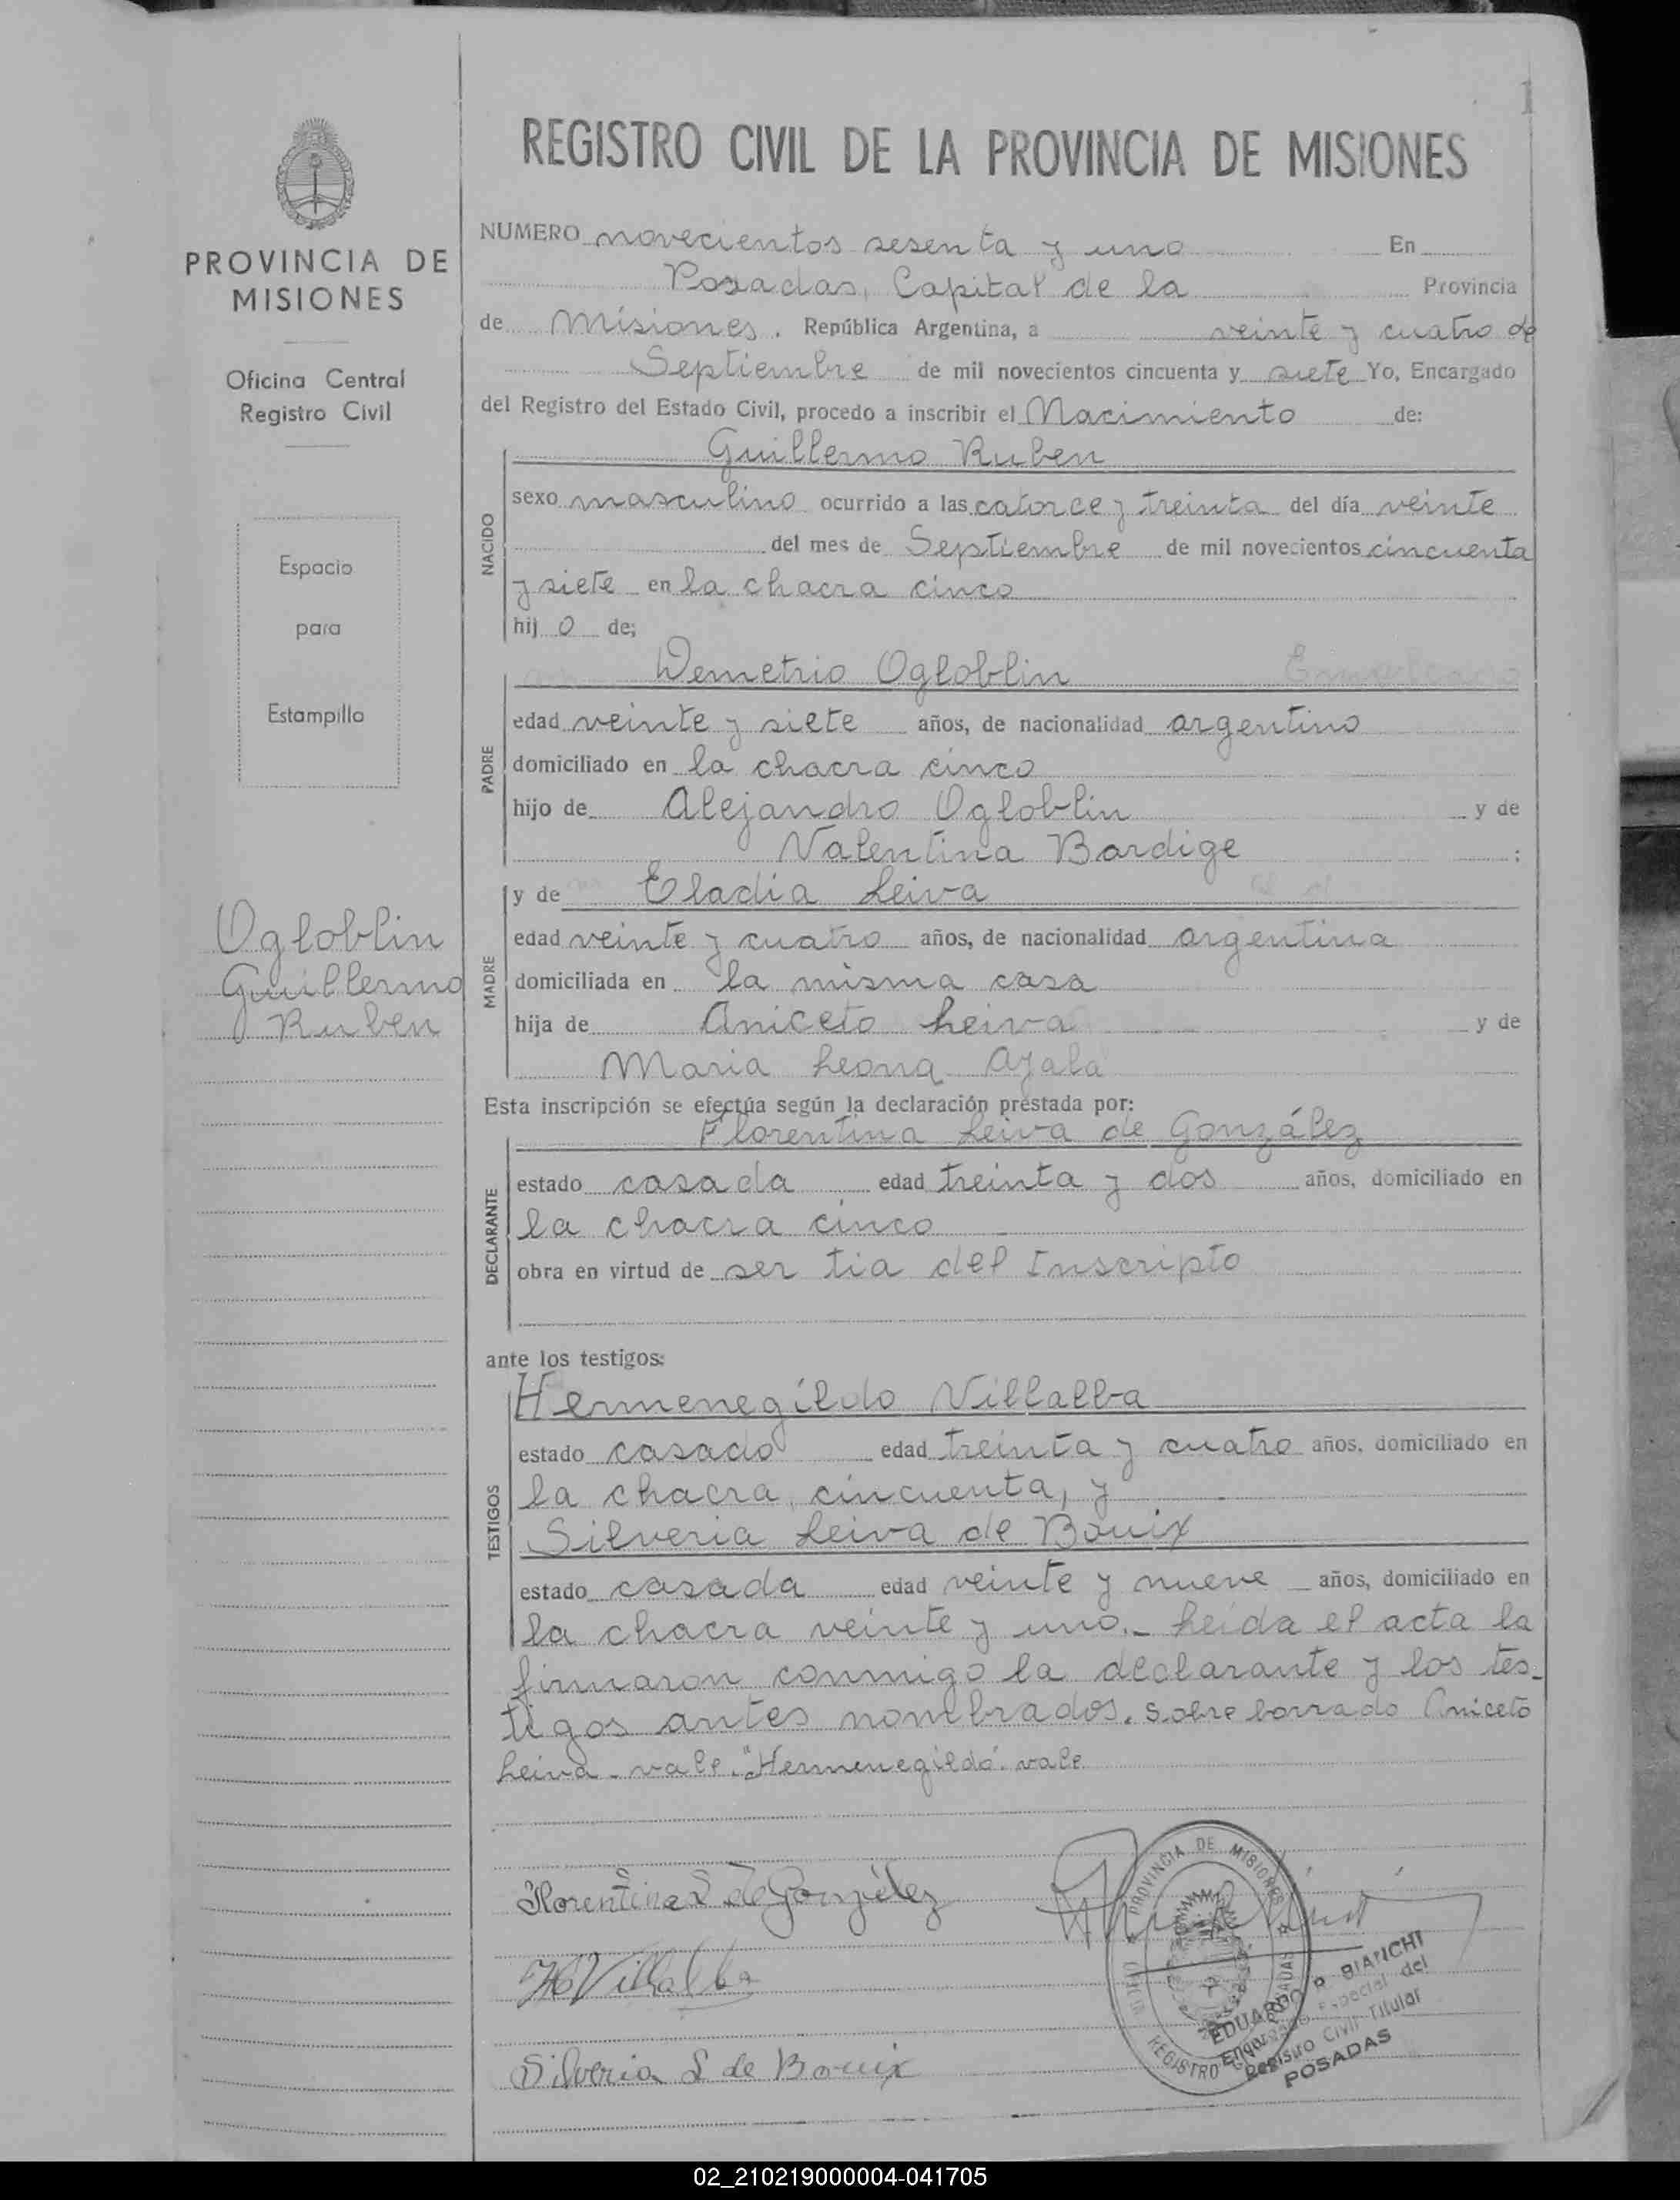 1
REGISTRO CIVIL DE LA PROVINCIA DE MISIONES
PROVINCIA DE
MISIONES
Oficina Central
Registro Civil
Espacio
para
Estampilla
Ogloblin
Guillermo
Ruben
NUMERO novecientos sesenta y uno En
Posadas, Capital de la Provincia
de Misiones. República Argentina, a veinte y cuatro de
Septiembre de mil novecientos cincuenta y siete Yo, Encargado
del Registro del Estado Civil, procedo a inscribir el Nacimiento de:
Guillermo Ruben
NACIDO
sexo masculino ocurrido a las catorce y treinta del día veinte
del mes de Septiembre de mil novecientos cincuenta
y siete en la chacra cinco
hij o de;
Demetrio Ogloblin
PADRE
edad veinte y siete años, de nacionalidad argentino
domiciliado en la chacra cinco
hijo de Alejandro Ogloblin y de
Valentina Bardige ;
y de Eladia Leiva
MADRE
edad veinte y cuatro años, de nacionalidad argentina
domiciliada en la misma casa
hija de Aniceto Leiva y de
Maria Leona Ayala
Esta inscripción se efectúa según la declaración prestada por:
Florentina Leiva de González
DECLARANTE
estado casada edad treinta y dos años, domiciliado en
la chacra cinco
obra en virtud de ser tia del Inscripto
ante los testigos:
Hermenegildo Villalba
TESTIGOS
estado casado edad treinta y cuatro años, domiciliado en
la chacra cincuenta, y
Silveria Leiva de Bouix
estado casada edad veinte y nueve años, domiciliado en
la chacra veinte y uno.- Leida el acta la
firmaron conmigo la declarante y los tes-
tigos antes nombrados. Sobre borrado Aniceto
Leiva - vale. "Hermenegildo". vale
Florentina L de González
H Villalba
Silveria L de Bouix
PROVINCIA DE MISIONES
REGISTRO
POSADAS
EDUARDO R. BIANCHI
Encargado Especial del
Registro Civil Titular
POSADAS
02_210219000004-041705